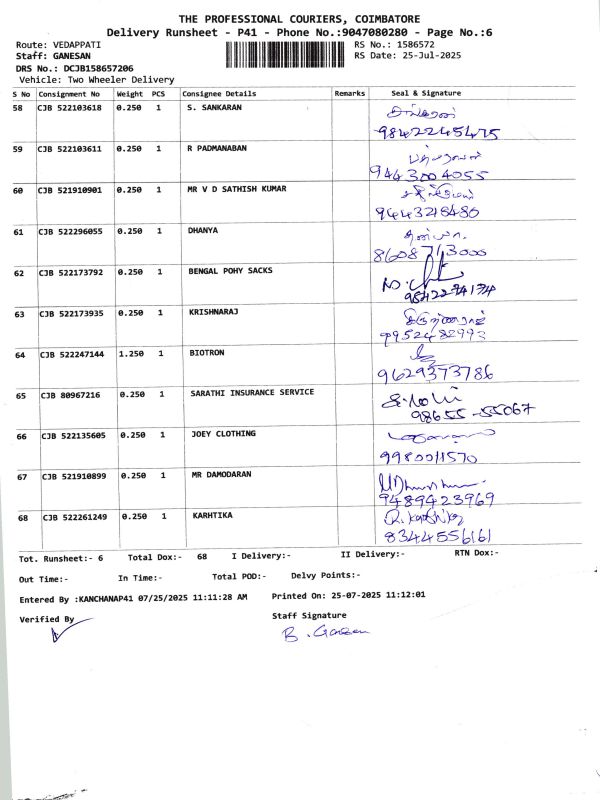 THE PROFESSIONAL COURIERS, COIMBATORE
Delivery Runsheet - P41 - Phone No.:9047080280 - Page No.:6
Route: VEDAPPATI RS No.: 1586572
Staff: GANESAN RS Date: 25-Jul-2025
DRS No.: DCJB158657206
Vehicle: Two Wheeler Delivery
S No Consignment No Weight PCS Consignee Details Remarks Seal & Signature
58 CJB 522103618 0.250 1 S. SANKARAN
9842245475
59 CJB 522103611 0.250 1 R PADMANABAN
9443004055
60 CJB 521910901 0.250 1 MR V D SATHISH KUMAR
9443218480
61 CJB 522296055 0.250 1 DHANYA
8608713000
62 CJB 522173792 0.250 1 BENGAL POHY SACKS
63 CJB 522173935 0.250 1 KRISHNARAJ
9952482993
64 CJB 522247144 1.250 1 BIOTRON
9629373786
65 CJB 80967216 0.250 1 SARATHI INSURANCE SERVICE
98655-55067
66 CJB 522135605 0.250 1 JOEY CLOTHING
9980011570
67 CJB 521910899 0.250 1 MR DAMODARAN
9489423969
68 CJB 522261249 0.250 1 KARHTIKA
8344556161
Tot. Runsheet:- 6 Total Dox:- 68 I Delivery:- II Delivery:- RTN Dox:-
Out Time:- In Time:- Total POD:- Delvy Points:-
Entered By :KANCHANAP41 07/25/2025 11:11:28 AM Printed On: 25-07-2025 11:12:01
Verified By Staff Signature
B. Ganesan